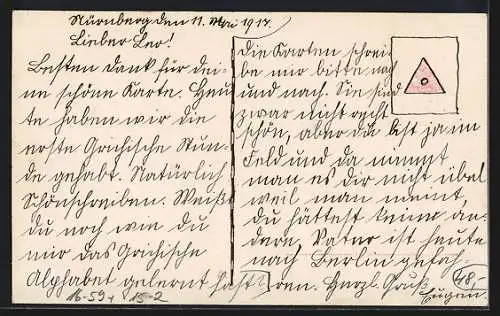 Nürnberg den 11. Mai 1917.
Lieber Leo!
Besten Dank für dei-
ne schöne Karte. Heu-
te haben wir die
erste Grichische Stun-
de gehabt. Natürlich
Schönschreiben. Weißt
du noch wie du
mir das Grichische
Alphabet gelernt hast?
Die Karten schrei-
be mir bitte nach
und nach. Sie sind
zwar nicht recht
schön, aber du bist ja im
Feld und da nimmt
man es dir nicht übel
weil man meint,
du hättest keine an-
dern. Vater ist heute
nach Berlin gefah-
ren. Herzl. Gruß
Eugen.
48,-
16-59
15-2